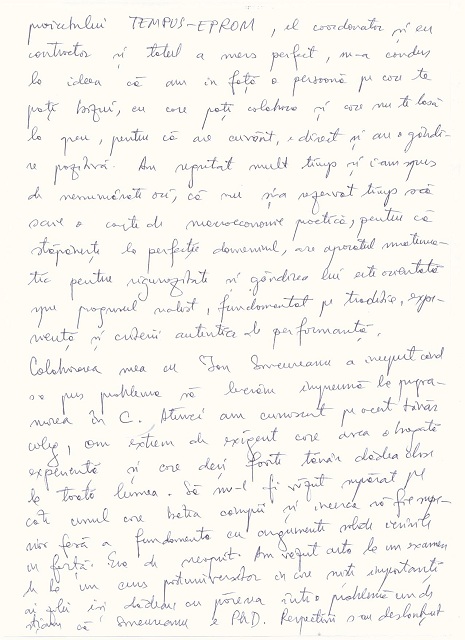 proiectului TEMPUS-EPROM, el coordonator și eu
contractor și totul a mers perfect, m-a condus
la ideea că am în față o persoană pe care te
poți bizui, cu care poți colabora și care nu te lasă
la greu, pentru că are cuvânt, e direct și are o gândi-
re pozitivă. Am regretat mult timp și i-am spus
de nenumărate ori, că nu și-a rezervat timp să
scrie o carte de macroeconomie practică, pentru că
stăpânește la perfecție domeniul, are aparatul matema-
tic pentru rigurozitate și gândirea lui este orientată
spre progresul valoric, fundamentat pe tradiție, expe-
riență și criterii autentice de performanță.
Colaborarea mea cu Ion Smeureanu a început când
s-a pus problema să lucrăm împreună la progra-
marea în C. Atunci am cunoscut pe acest tânăr
coleg, om extrem de exigent care avea o bogată
experiență și care deși foarte tânăr dădea clase
la toată lumea. Să nu-l fi văzut supărat pe
câte unul care bătea câmpii și încerca să fie supe-
rior fără a fundamenta cu argumente solide
în față. Era de neoprit. Am văzut asta la un examen
de la un curs postuniversitar în care niște importanți
ai zilei își dădeau cu părerea într-o problemă
știau că Smeureanu e PhD. Respectivii s-au